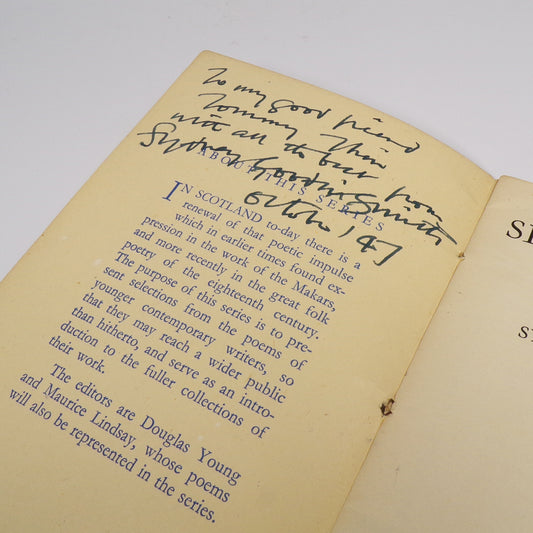 To my good friend
Tommy
with all the best from
Sydney Goodsir Smith
October '47
ABOUT THIS SERIES
IN SCOTLAND to-day there is a
renewal of that poetic impulse
which in earlier times found ex-
pression in the work of the Makars,
and more recently in the great folk
poetry of the eighteenth century.
The purpose of this series is to pre-
sent selections from the poems of
younger contemporary writers, so
that they may reach a wider public
than hitherto, and serve as an intro-
duction to the fuller collections of
their work.
The editors are Douglas Young
and Maurice Lindsay, whose poems
will also be represented in the series.